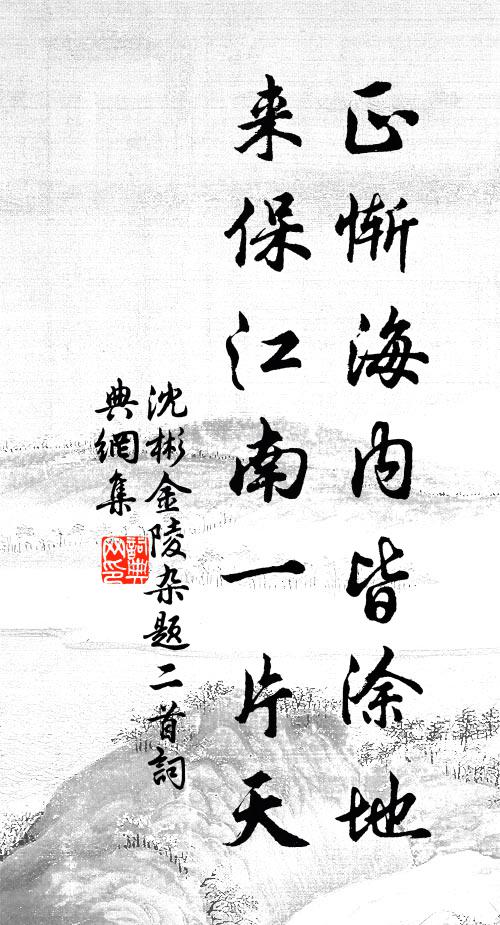 正惭海内皆涂地
来保江南一片天
沈彬金陵杂题二首詞
典網集
詞典网印